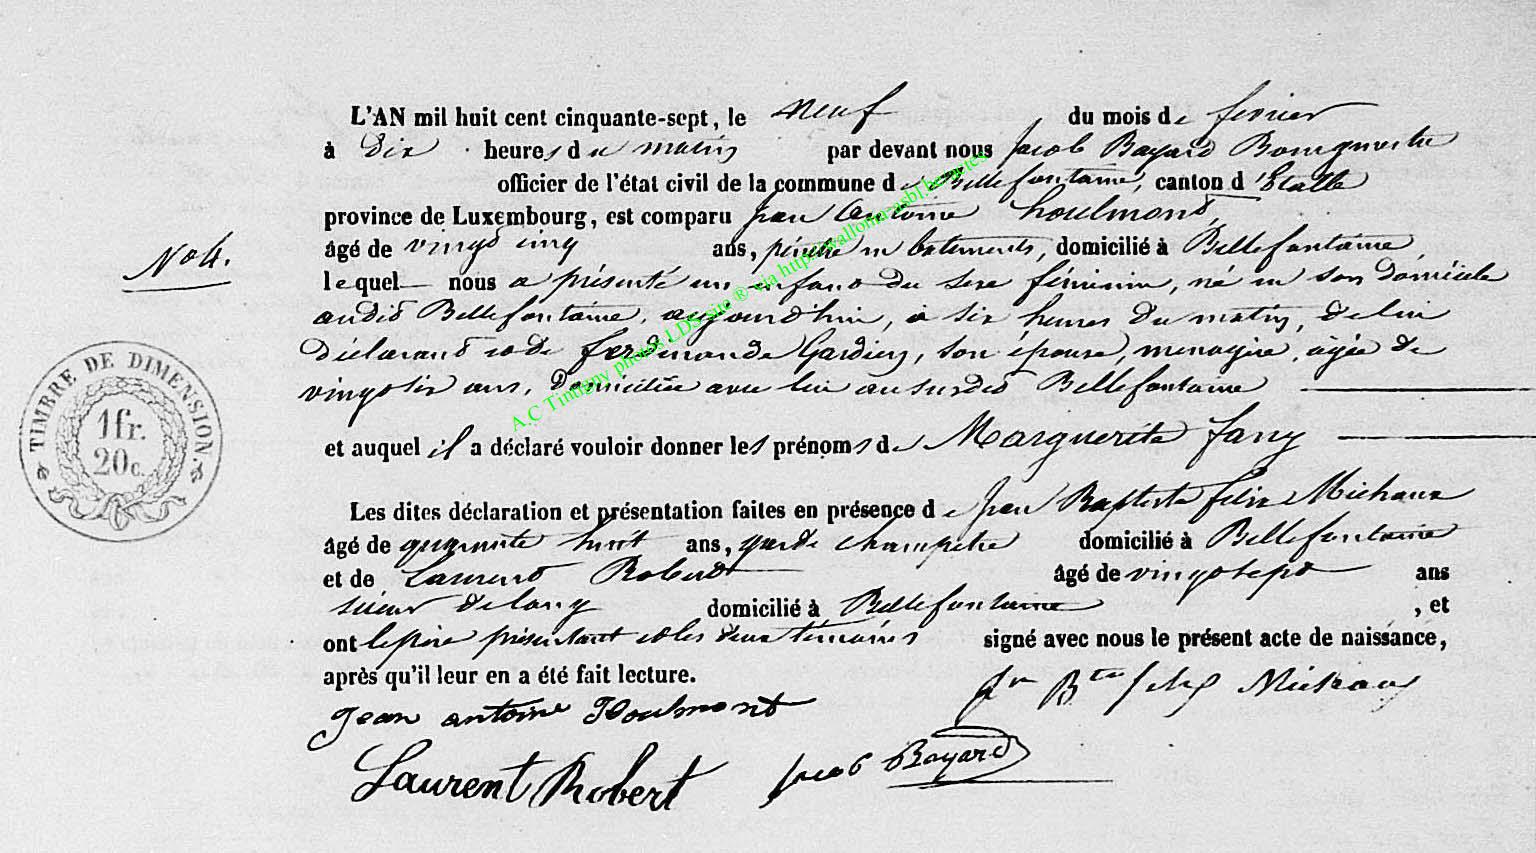 L'AN mil huit cent cinquante-sept, le neuf du mois de fevrier
à dix heures du matin par devant nous Jacob Bayard Bourgmestre
officier de l'état civil de la commune de Bellefontaine, canton d'Etalle
province de Luxembourg, est comparu Jean Antoine houlmont,
âgé de vingt cinq ans, peintre en batements, domicilié à Bellefontaine,
No 4.
lequel nous a présenté un enfant du sexe féminin, né en son domicile
audit Bellefontaine, aujourd'hui, à six heures du matin, de lui
déclarant et de ferdinande Gardien, son épouse, menagère, agée de
vingt six ans, domiciliée avec lui au susdit Bellefontaine
et auquel il a déclaré vouloir donner les prénoms de Marguerite fany
Les dites déclaration et présentation faites en présence de Jean Baptiste felix Michaux
âgé de quarante huit ans, garde champetre domicilié à Bellefontaine
et de Laurent Robert âgé de vingt sept ans
sieur de long domicilié à Bellefontaine, et
ont le père présentant et les deux témoins signé avec nous le présent acte de naissance,
après qu'il leur en a été fait lecture.
Jean antoine Houlmont Jn Bte felix Michaux
Laurent Robert Jacob Bayard
TIMBRE DE DIMENSION
1fr.
20c.
A.C Tintigny photos LDS site ® via